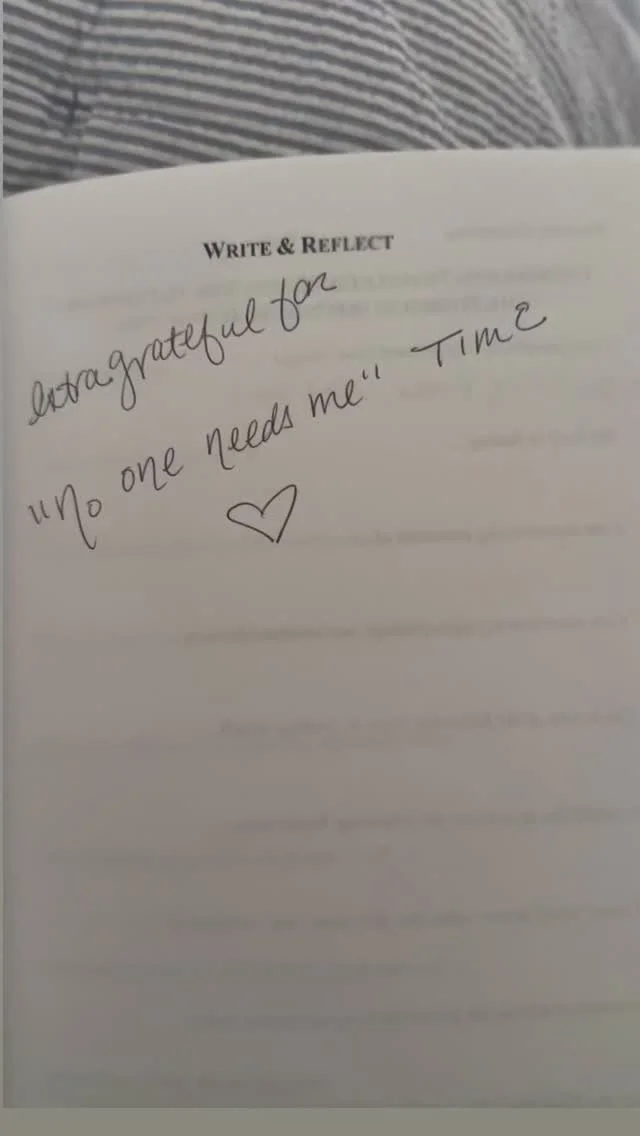 WRITE & REFLECT
extra grateful for
"no one needs me" TIME